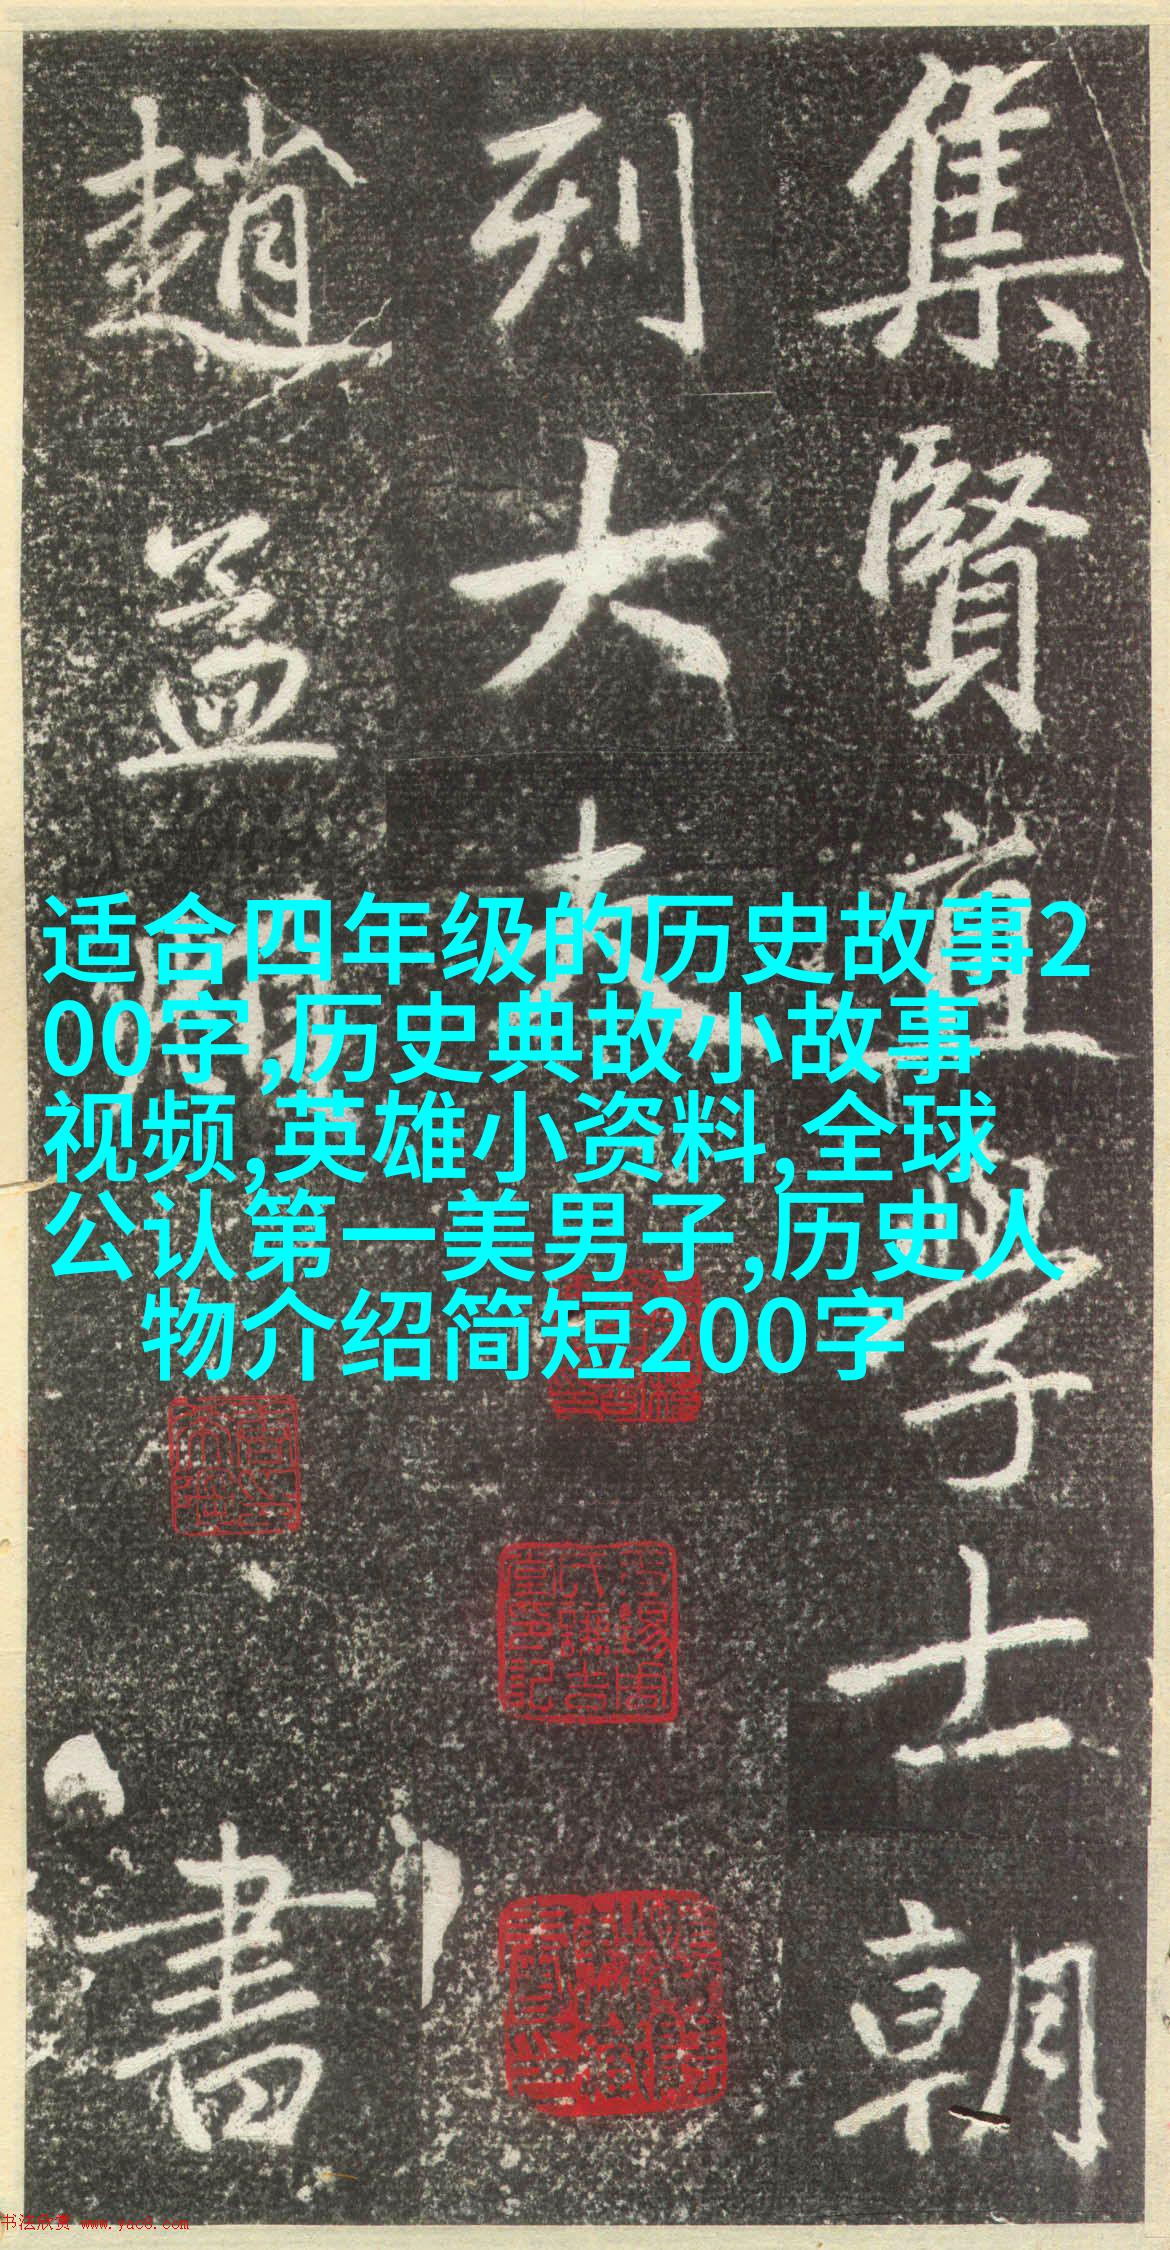 集賢直學士朝
列大夫
趙孟頫
書
适合四年级的历史故事2
00字,历史典故小故事
视频,英雄小资料,全球
公认第一美男子,历史人
物介绍简短200字
书法欣赏 www.yac8.com